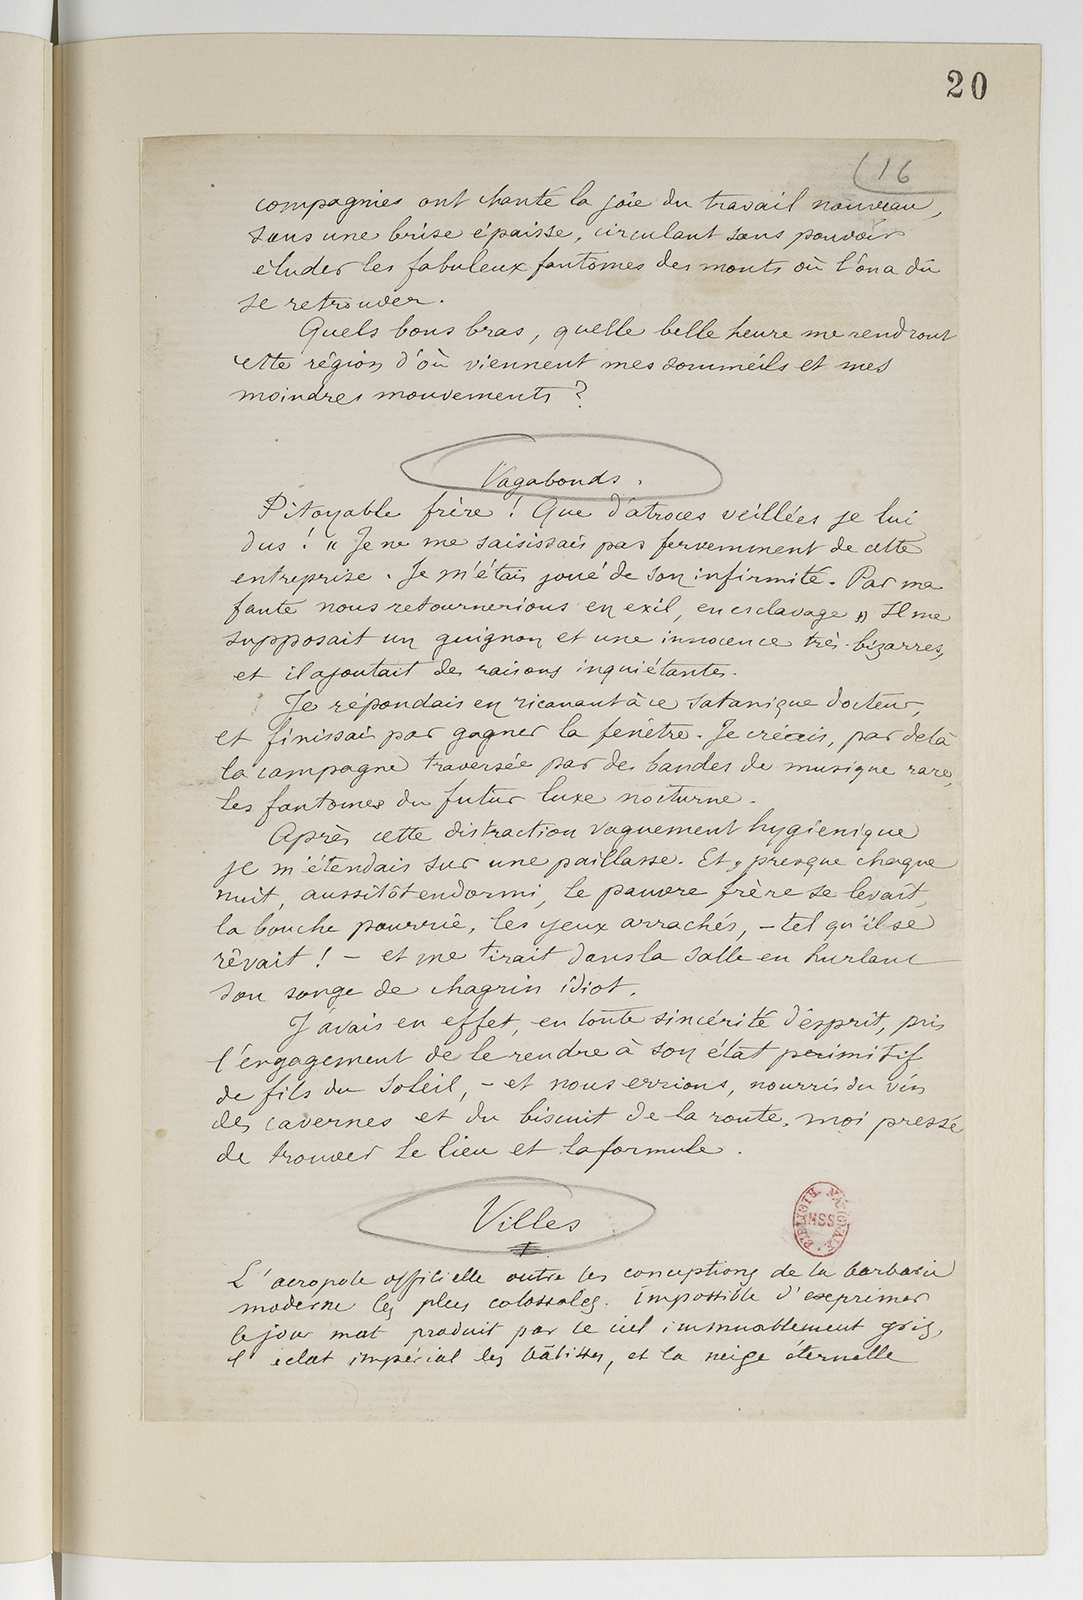 20
(16
compagnies ont chanté la joie du travail nouveau,
sous une brise épaisse, circulant sans pouvoir
éluder les fabuleux fantômes des monts où l'on a dû
se retrouver.
Quels bons bras, quelle belle heure me rendront
cette région d'où viennent mes sommeils et mes
moindres mouvements ?
Vagabonds.
Pitoyable frère ! Que d'atroces veillées je lui
dus ! « Je ne me saisissais pas fervemment de cette
entreprise. Je m'étais joué de son infirmité. Par ma
faute nous retournerions en exil, en esclavage » Il me
supposait un guignon et une innocence très-bizarres,
et il ajoutait des raisons inquiétantes.
Je répondais en ricanant à ce satanique docteur,
et finissais par gagner la fenêtre. Je créais, par delà
la campagne traversée par des bandes de musique rare,
les fantômes du futur luxe nocturne.
Après cette distraction vaguement hygiénique
je m'étendais sur une paillasse. Et, presque chaque
nuit, aussitôt endormi, le pauvre frère se levait,
la bouche pourrie, les yeux arrachés, – tel qu'il se
rêvait ! – et me tirait dans la salle en hurlant
son songe de chagrin idiot.
J'avais en effet, en toute sincérité d'esprit, pris
l'engagement de le rendre à son état primitif
de fils du soleil, – et nous errions, nourris du vin
des cavernes et du biscuit de la route, moi pressé
de trouver le lieu et la formule.
Villes
L'acropole officielle outre les conceptions de la barbarie
moderne les plus colossales. Impossible d'exprimer
le jour mat produit par le ciel immuablement gris,
l'éclat impérial des bâtisses, et la neige éternelle
BIBLIOTH. NATIONALE
MSS